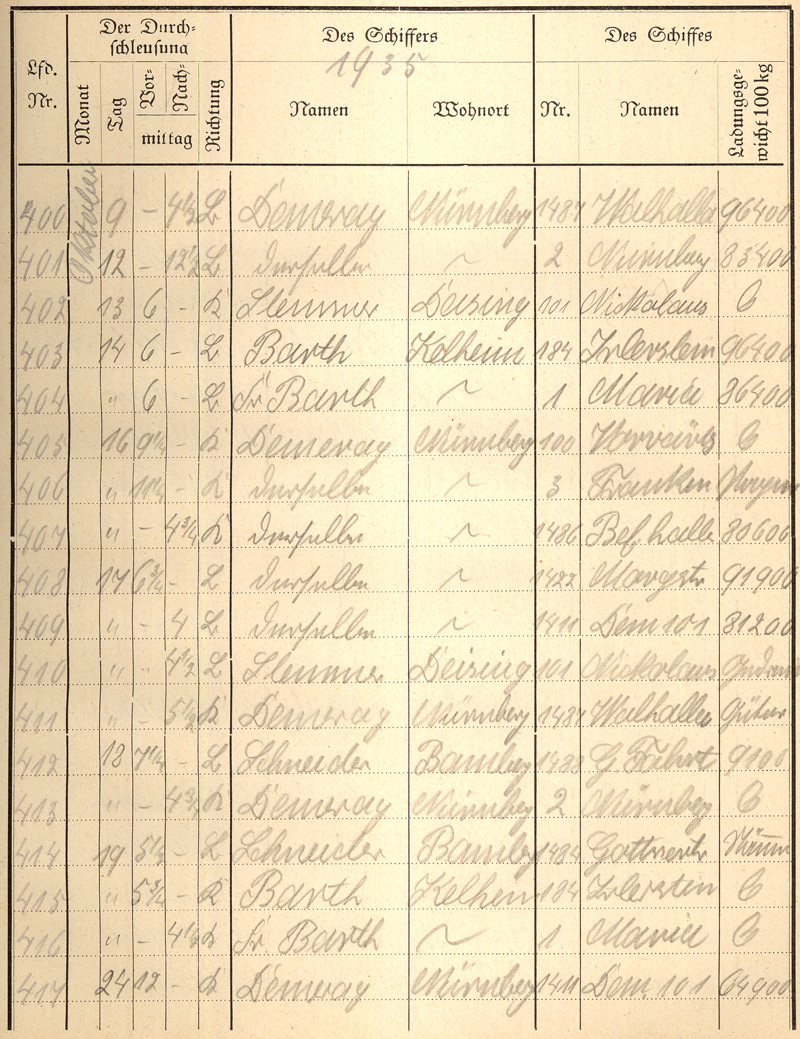 Der Durch-
schleusung
Des Schiffers
Des Schiffes
1935
Lfd.
Nr.
Monat
Tag
Vor-
Nach-
mittag
Richtung
Namen
Wohnort
Nr.
Namen
Ladungsge-
wicht 100 kg
Oktober
400 9 – 4½ L Demeray Nürnberg 1487 Walhalla 96400
401 12 – 12½ L derselbe ~ 2 Nürnberg 83400
402 13 6 – K Stemmer Deising 101 Nickolaus
403 14 6 – L Barth Kelheim 184 96400
404 " 6 – L Barth ~ 1 Marie 86400
405 16 – K Demeray Nürnberg 100 Vorwärts
406 " – K derselbe ~ 3 Franken
407 " – 4¾ K derselbe ~ 1486 Bef. halle 80600
408 17 6¾ – L derselbe ~ 1422 91900
409 " – 4 L derselbe ~ 1411 Dem 101 81200
410 " " 4½ L Stemmer Deising 101 Nickolaus
411 " – 5½ K Demeray Nürnberg 1487 Walhalla
412 18 – L Schneider Bamberg 9100
413 " – 4¾ K Demeray Nürnberg 2 Nürnberg
414 19 – L Schneider Bamberg
415 " 5¾ – K Barth Kelheim 184
416 " – 4½ K Barth ~ 1 Marie
417 24 12 – K Demeray Nürnberg 1411 Dem 101 64900